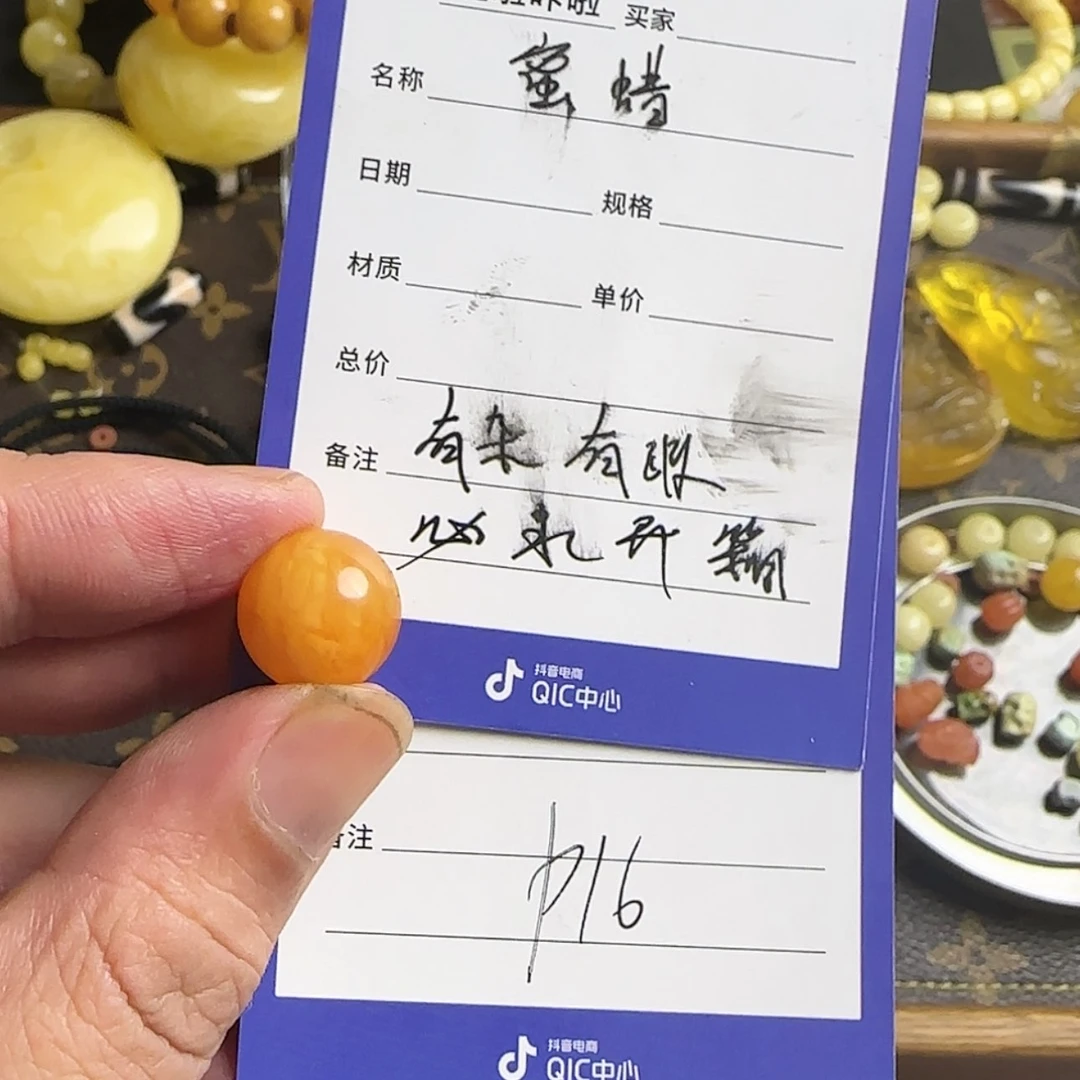 买家
名称 蜜蜡
日期 规格
材质 单价
总价
备注 有杂 有瑕
抖音电商
QIC中心
备注 p16
抖音电商
QIC中心